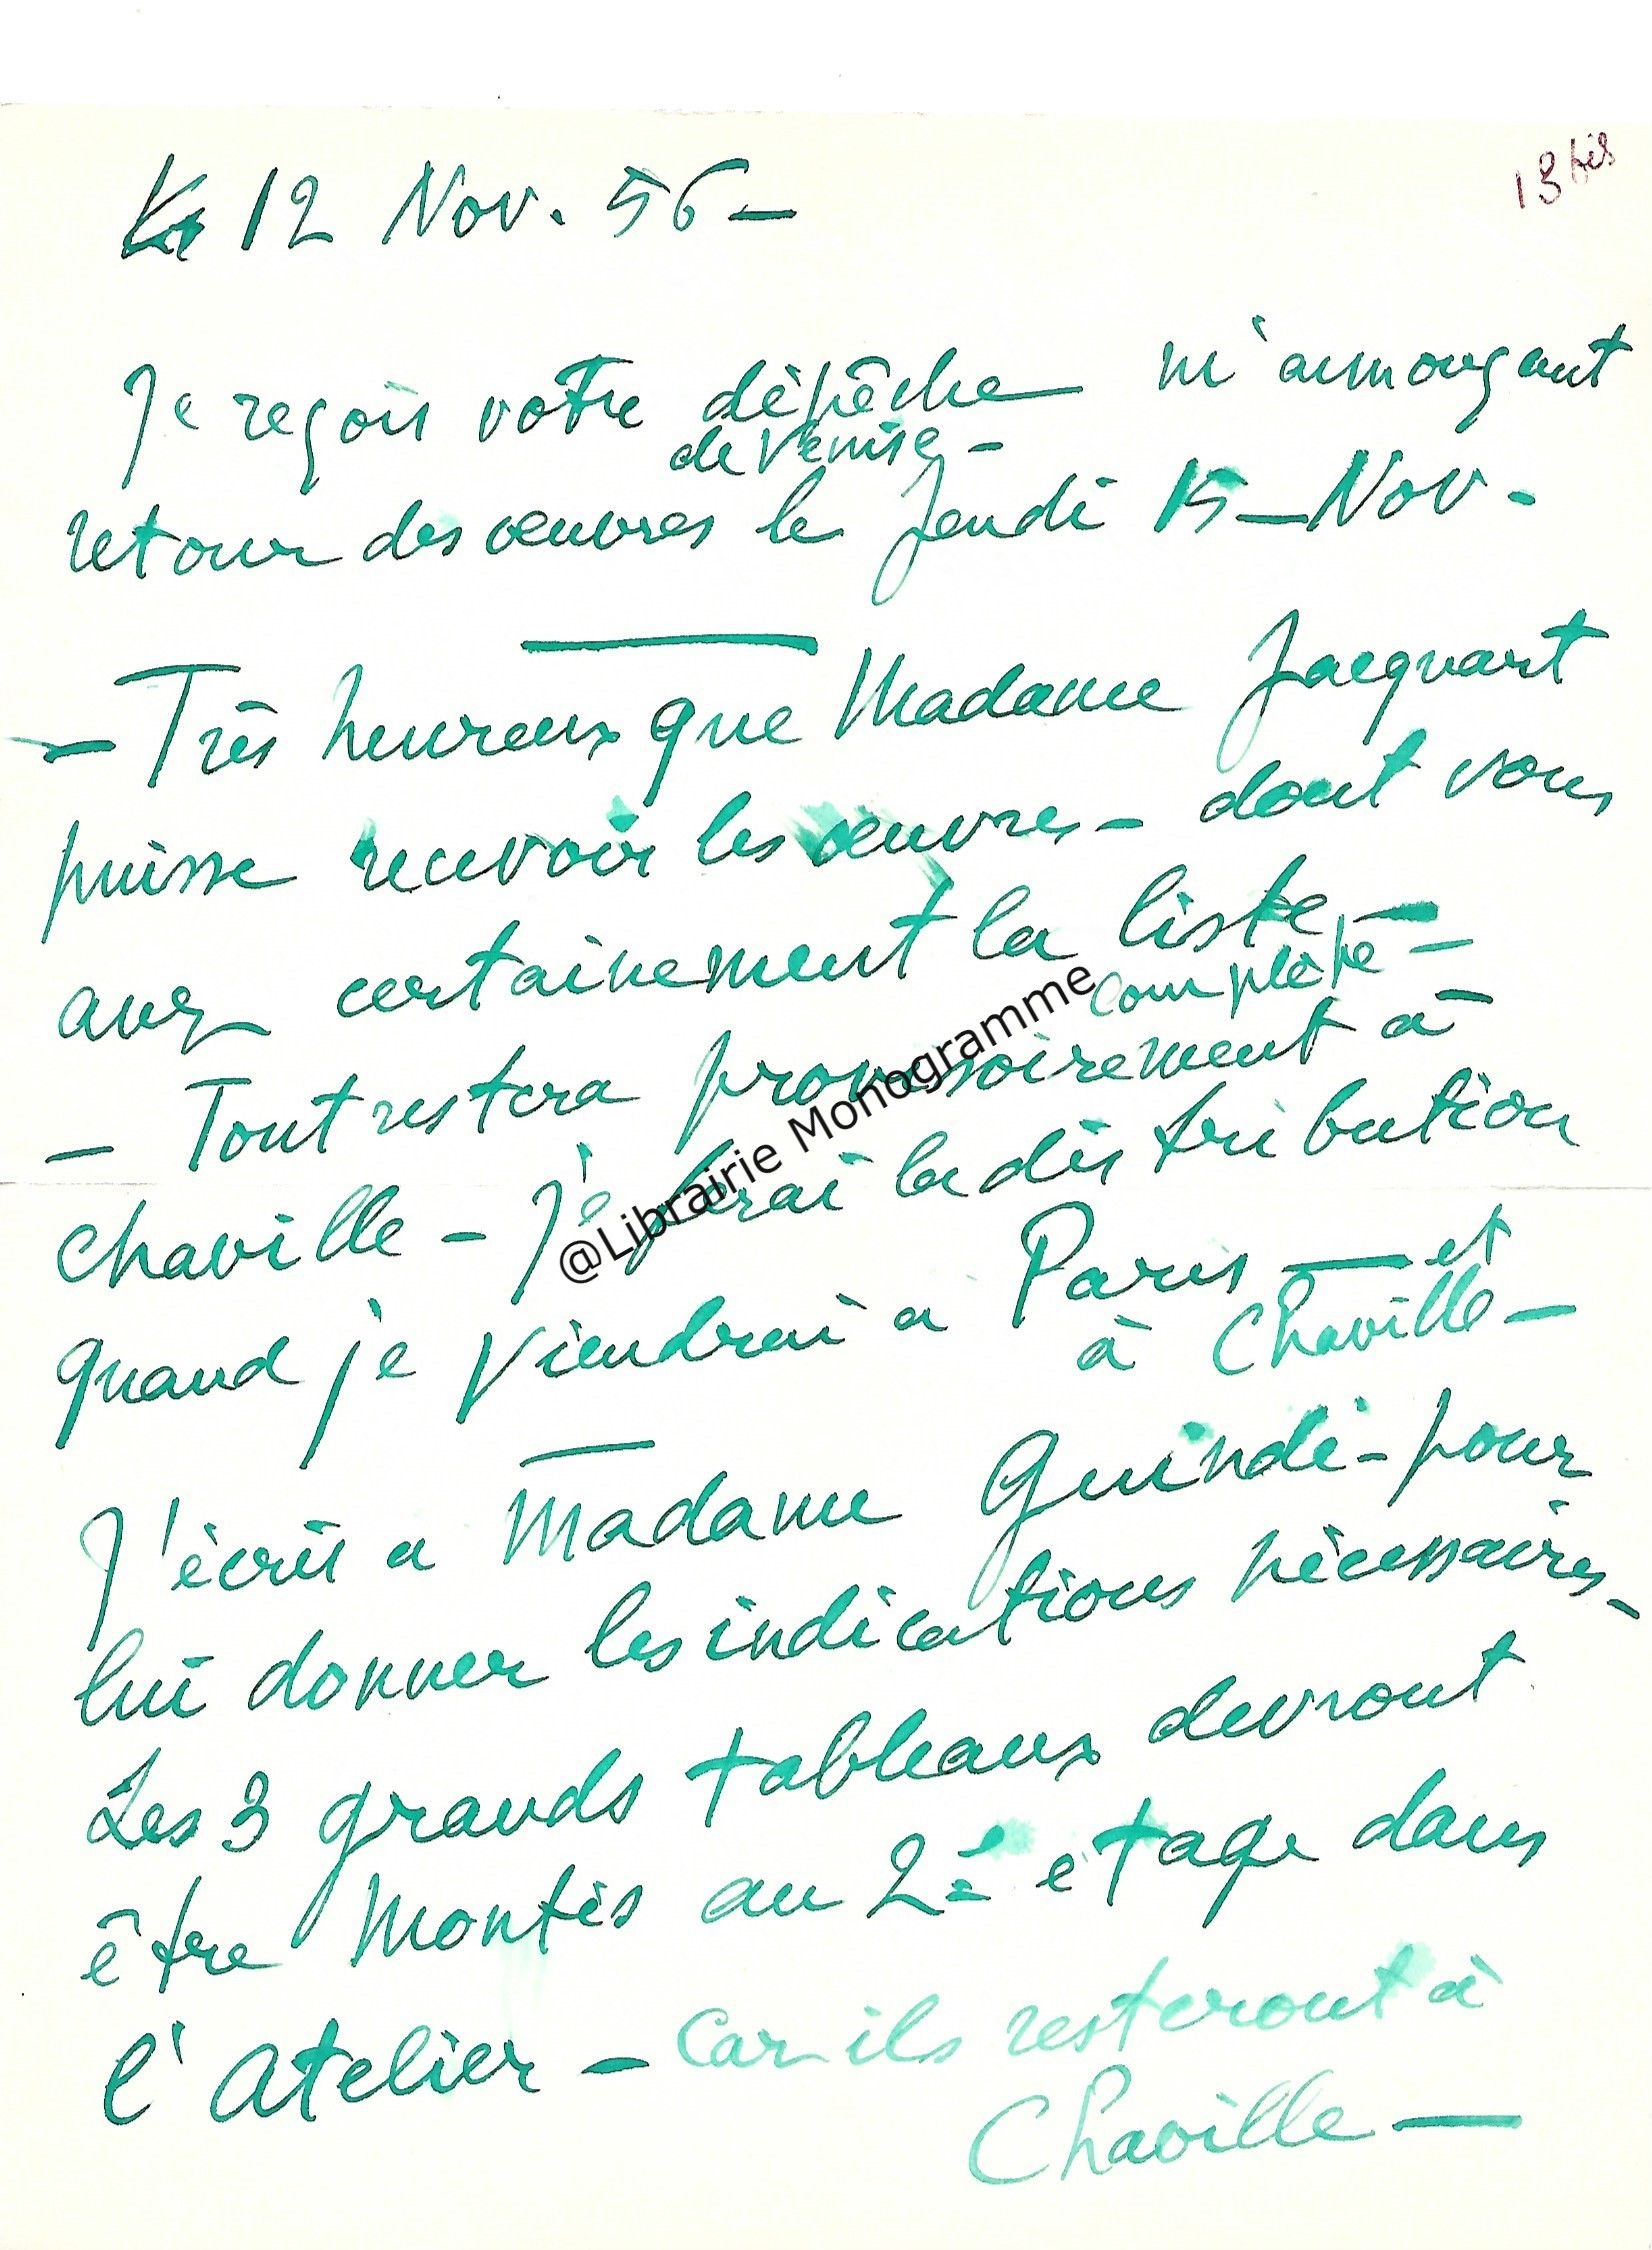 13 bis
Le 12 Nov. 56 -
Je reçois votre dépêche m'annonçant
de Venise -
retour des œuvres le Jeudi 15 - Nov -
- Très heureux que Madame Jacquart
puisse recevoir les œuvres - dont vous
avez certainement la liste -
complète -
- Tout restera provisoirement à
Chaville - Je ferai la distribution
quand je viendrai a Paris — et
à Chaville -
J'écris a Madame Guindi - pour
lui donner les indications nécessaires -
Les 3 grands tableaux devront
être montés au 2è étage dans
l'Atelier - Car ils resteront à
Chaville -
@Librairie Monogramme